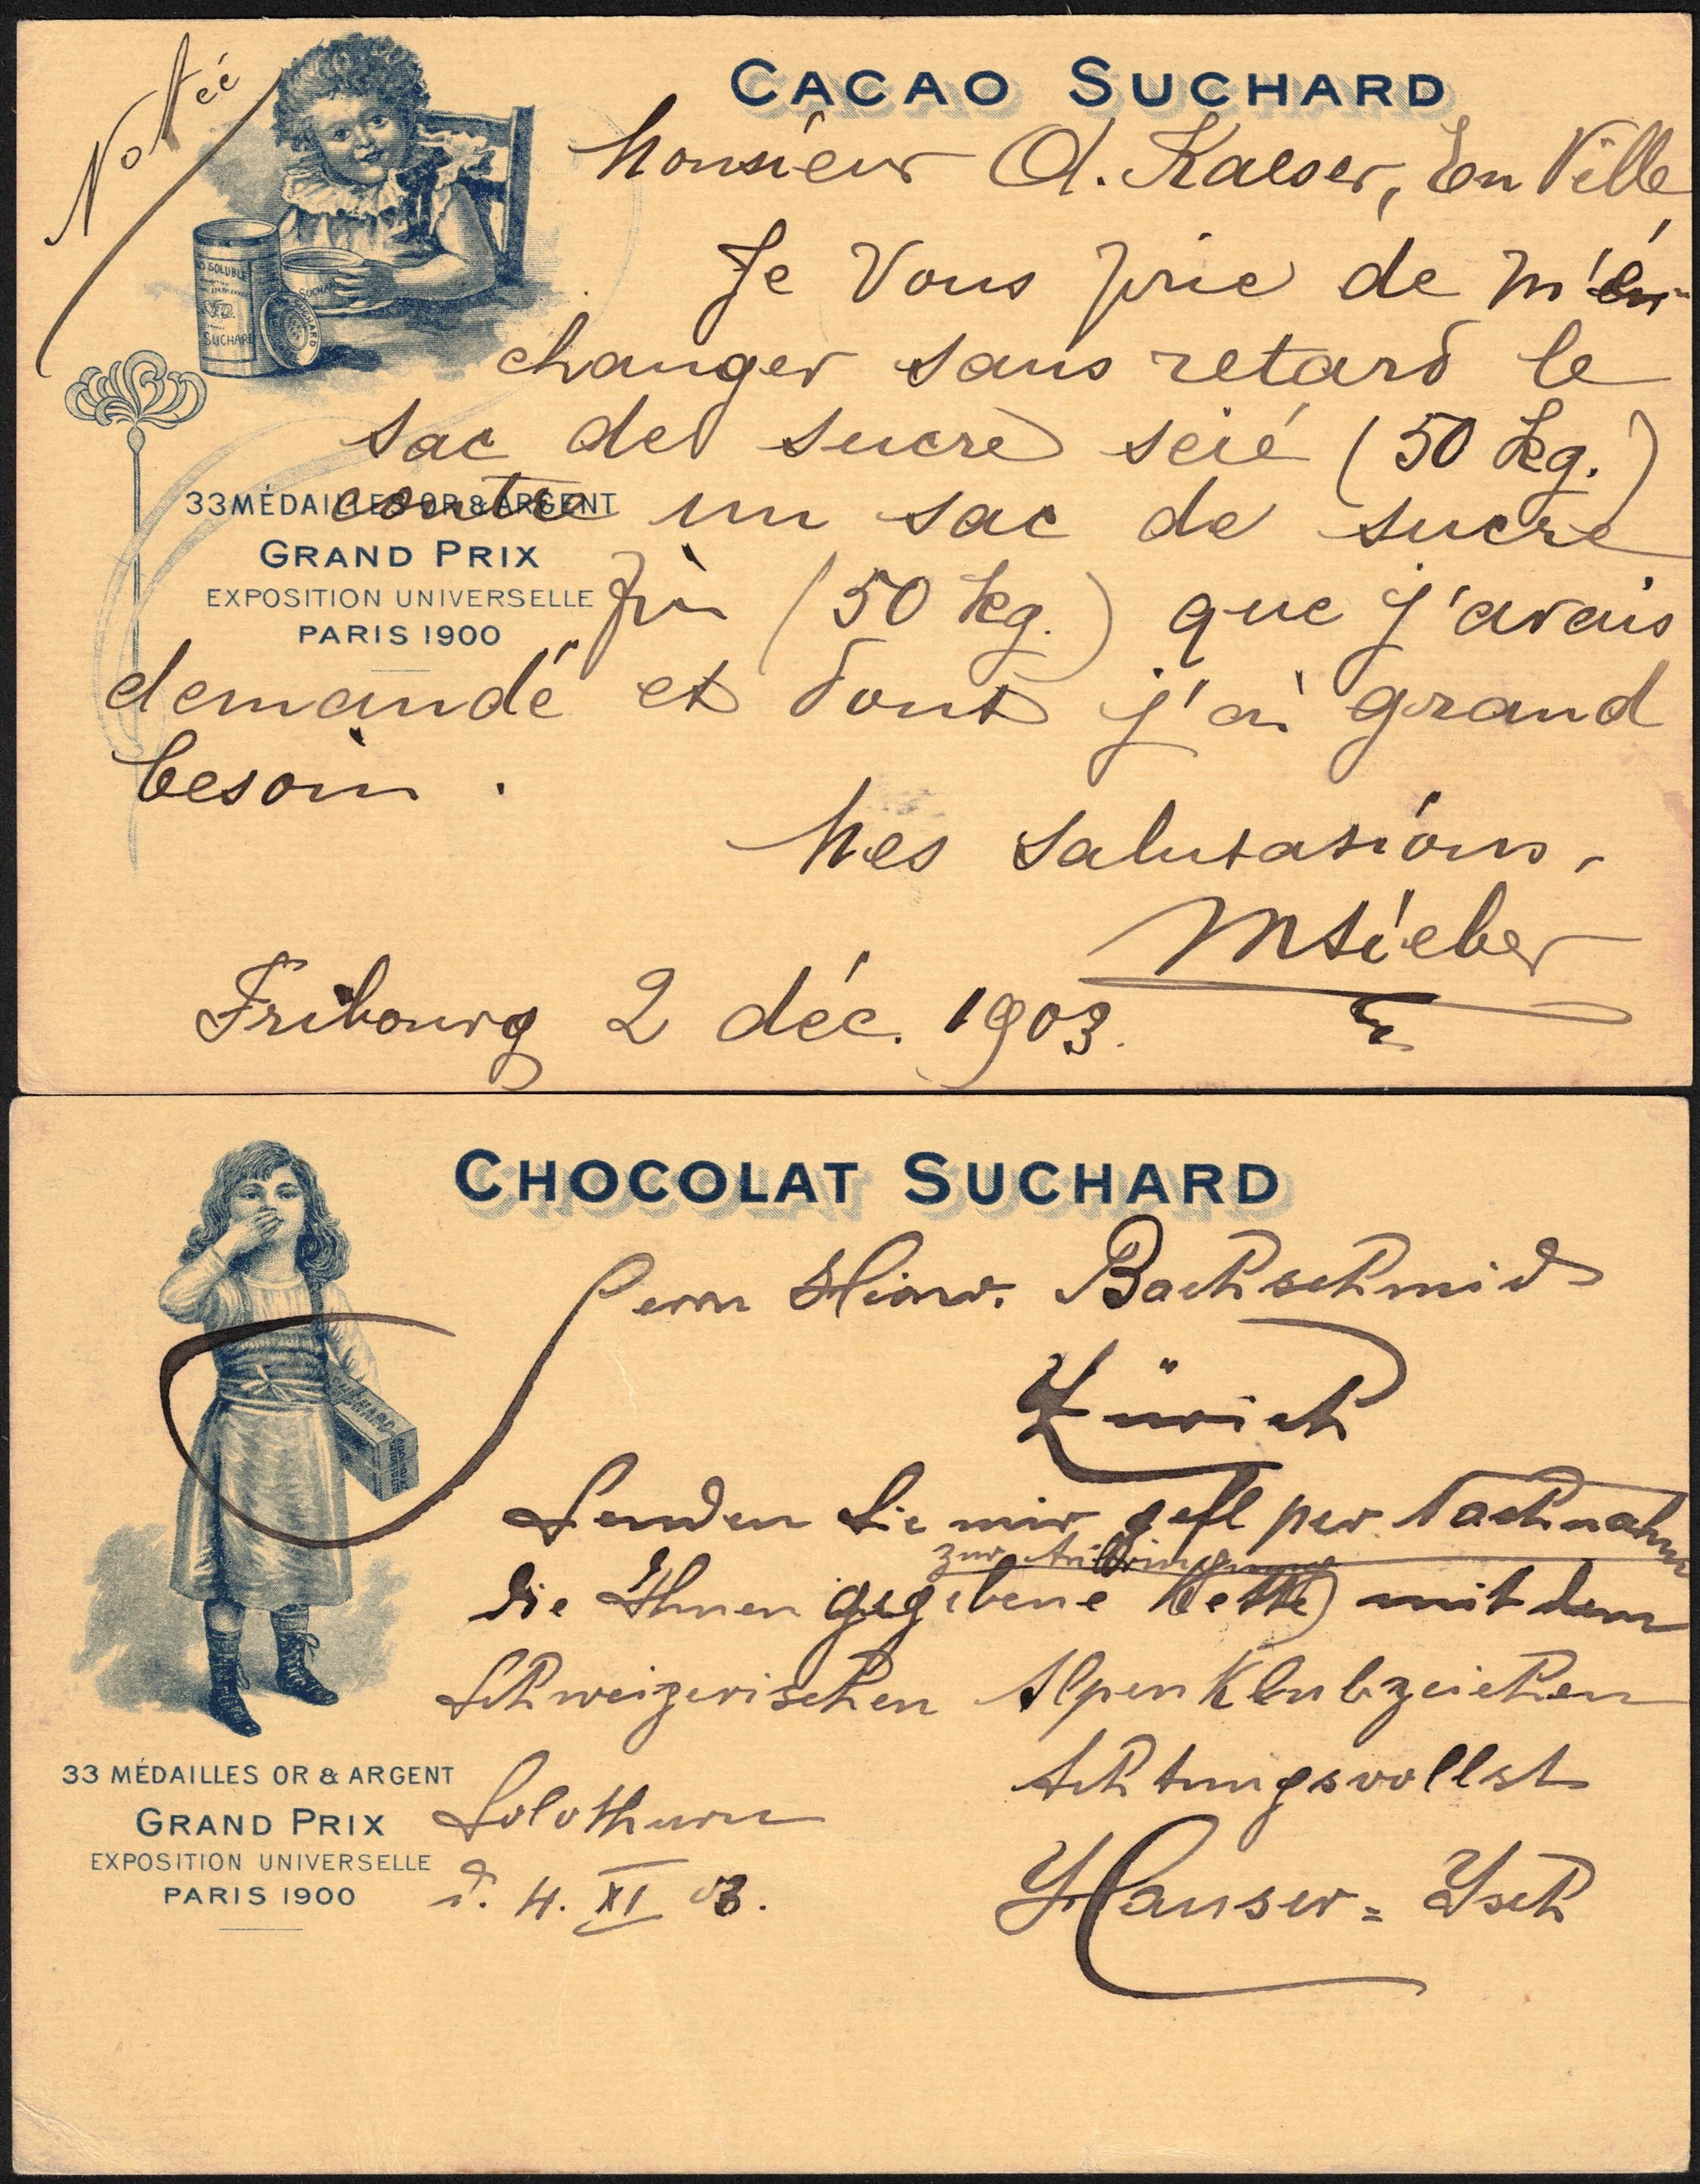 Notéé
CACAO SUCHARD
Monsieur A. Kaeser, En Ville
Je Vous prie de m'é
changer sans retard le
sac de sucre scié (50 kg.)
contre un sac de sucre
fin (50 kg.) que j'avais
demandé et dont j'ai grand
besoin.
Mes salutations.
MSieber
Fribourg 2 déc. 1903.
SOLUBLE
SUCHARD
SUCHARD
SUCHARD
33 MÉDAILLES OR & ARGENT
GRAND PRIX
EXPOSITION UNIVERSELLE
PARIS 1900
CHOCOLAT SUCHARD
Herrn Bachschmid
Zürich
Senden Sie mir gefl per Nachnahm
zur Anbringung
die Ihnen gegebene Kette mit dem
Schweizerischen Alpen Klubzeichen
Achtungsvollst
Solothurn
d. 4. XI 03.
Hauser=Isch
SUCHARD
33 MÉDAILLES OR & ARGENT
GRAND PRIX
EXPOSITION UNIVERSELLE
PARIS 1900